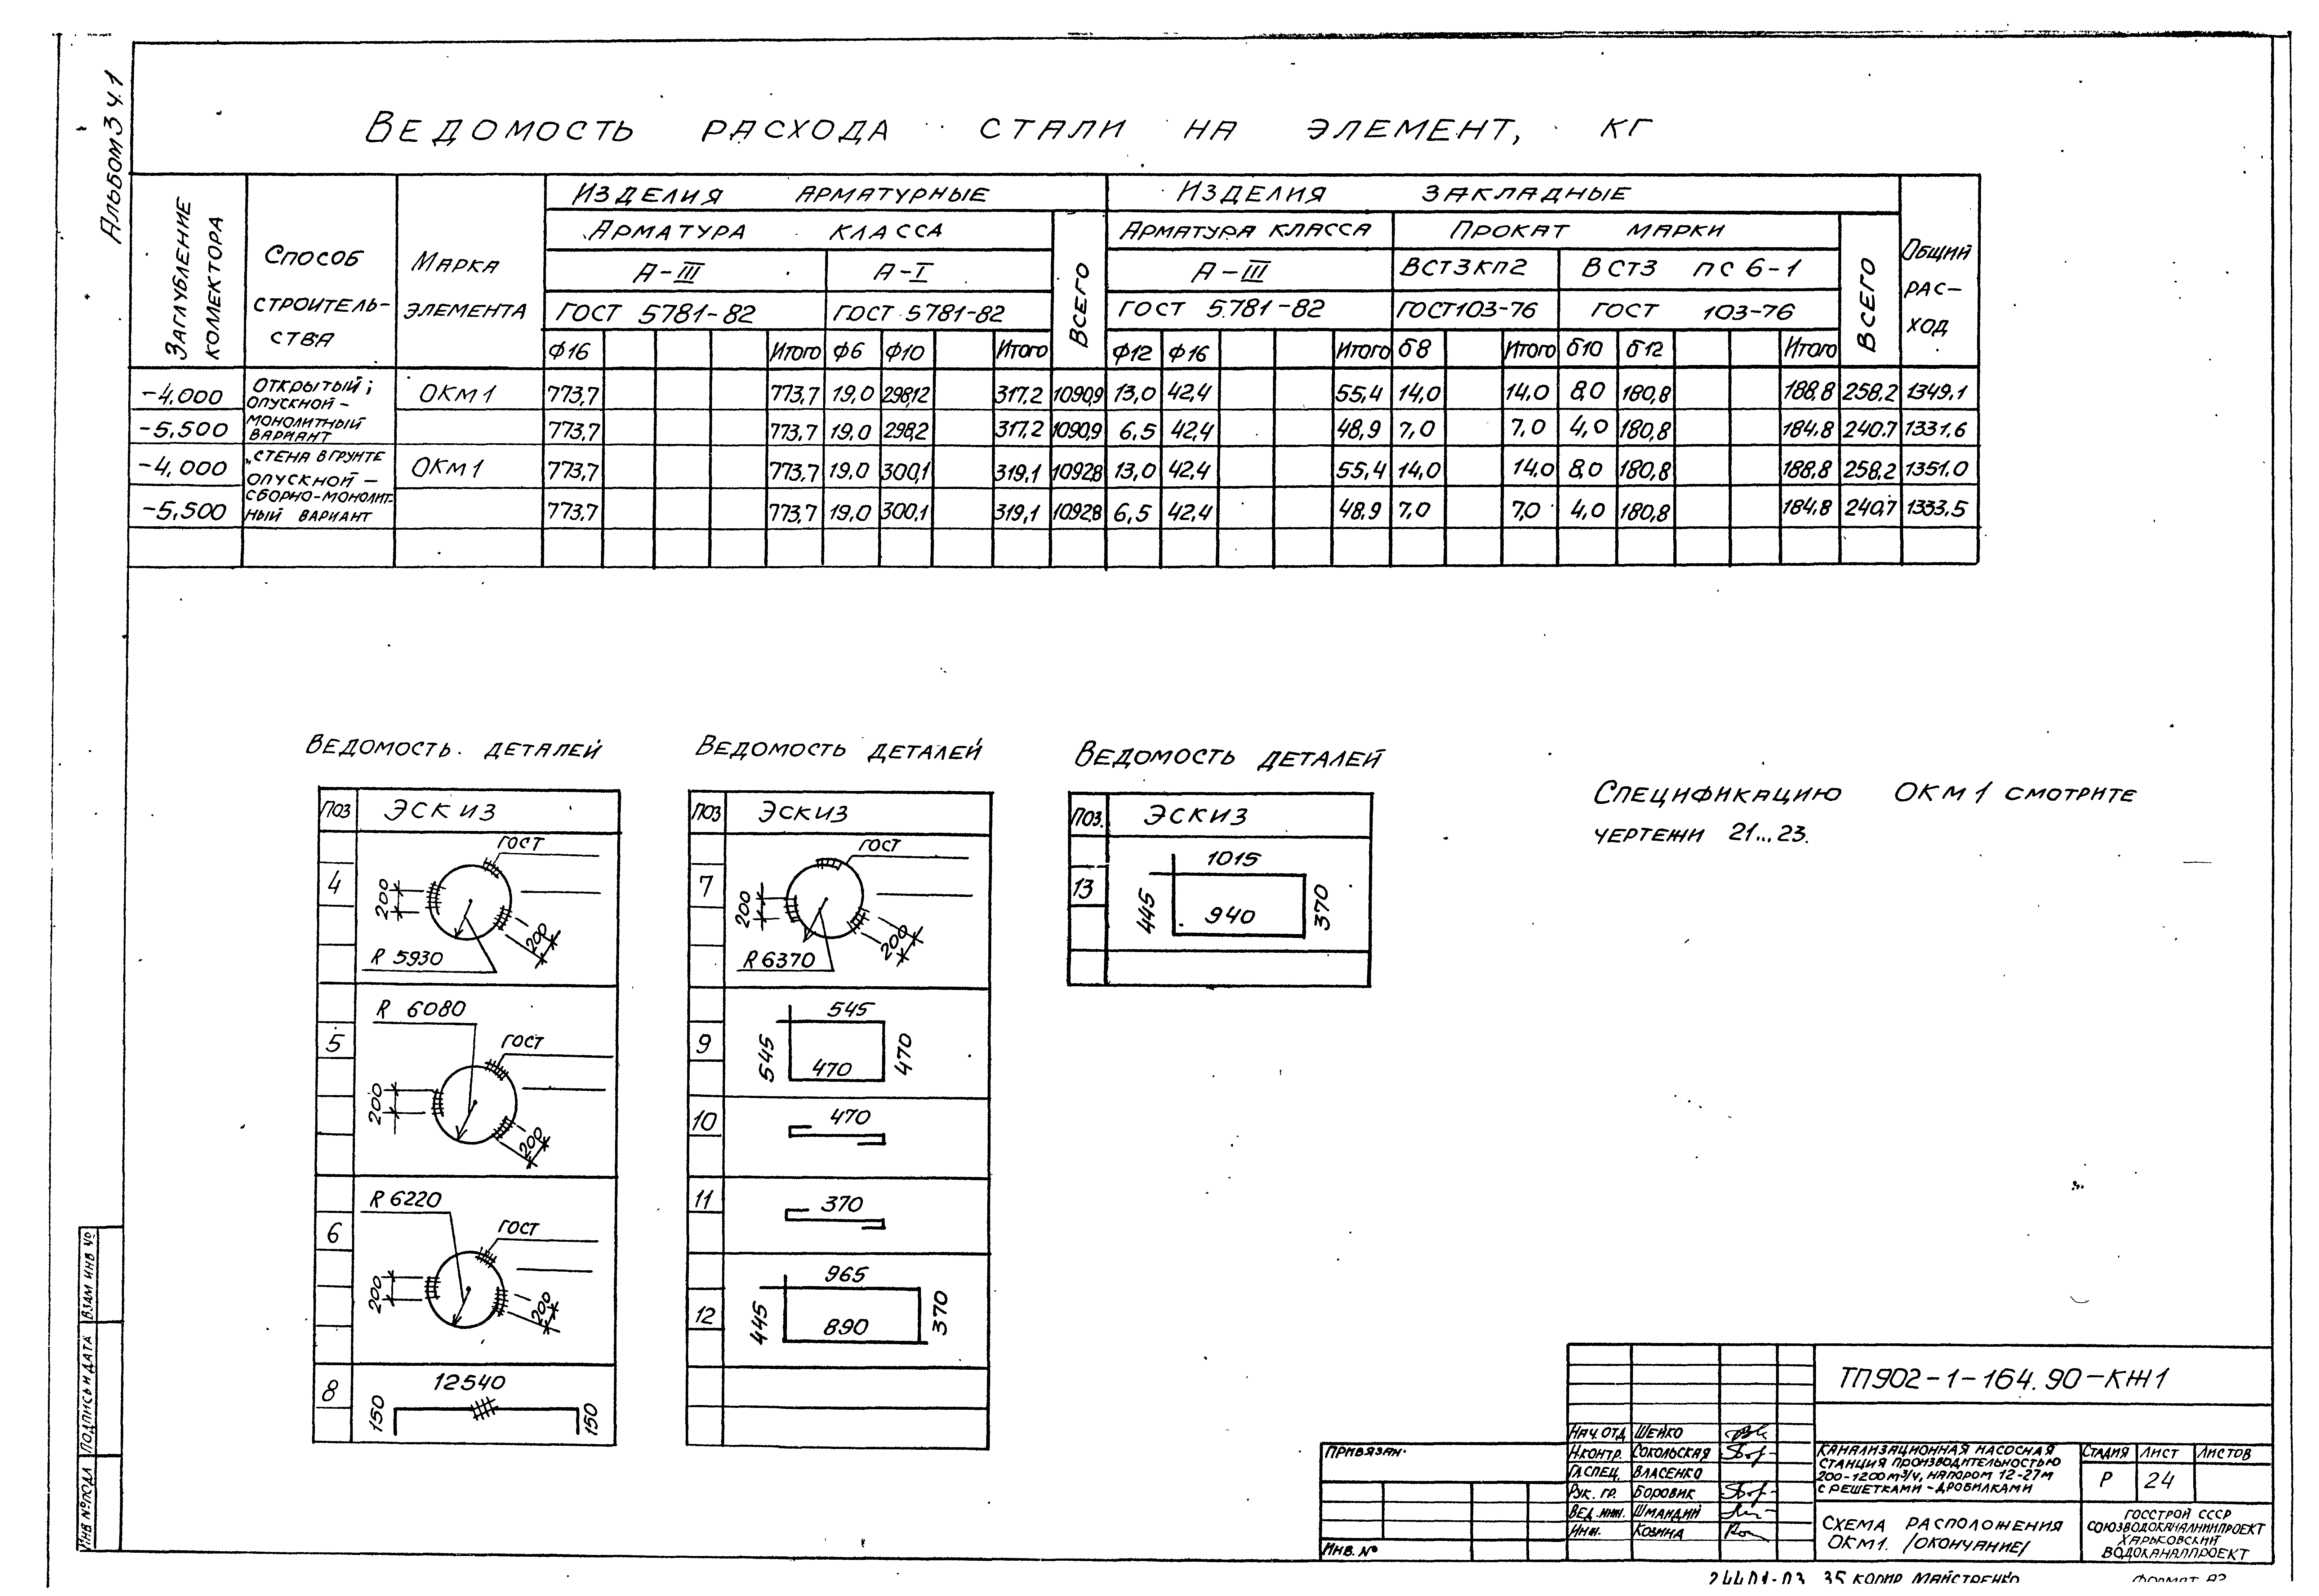 Альбом 3 ч.1
Ведомость расхода стали на элемент, кг
Заглубление коллектора
Способ строитель-ства
Марка элемента
Изделия арматурные
Изделия закладные
Общий рас-ход
Арматура класса
Всего
Арматура класса
Прокат марки
Всего
А-III
А-I
А-III
ВСт3кп2
ВСт3 пс 6-1
ГОСТ 5781-82
ГОСТ 5781-82
ГОСТ 5781-82
ГОСТ 103-76
ГОСТ 103-76
Ф16 Итого Ф6 Ф10 Итого Ф12 Ф16 Итого δ8 Итого δ10 δ12 Итого
-4,000 открытый; опускной - ОКм1 773,7 773,7 19,0 298,12 317,2 1090,9 13,0 42,4 55,4 14,0 14,0 8,0 180,8 188,8 258,2 1349,1
-5,500 монолитный вариант 773,7 773,7 19,0 298,2 317,2 1090,9 6,5 42,4 48,9 7,0 7,0 4,0 180,8 184,8 240,7 1331,6
-4,000 „стена в грунте опускной - ОКм1 773,7 773,7 19,0 300,1 319,1 1092,8 13,0 42,4 55,4 14,0 14,0 8,0 180,8 188,8 258,2 1351,0
-5,500 сборно-монолит-ный вариант 773,7 773,7 19,0 300,1 319,1 1092,8 6,5 42,4 48,9 7,0 7,0 4,0 180,8 184,8 240,7 1333,5
Ведомость деталей
Поз Эскиз
4
ГОСТ
200
200
R 5930
5
R 6080
ГОСТ
200
200
6
R 6220
ГОСТ
200
200
8
12540
150
150
Ведомость деталей
Поз Эскиз
7
ГОСТ
200
200
R 6370
9
545
545
470
470
10
470
11
370
12
965
445
890
370
Ведомость деталей
Поз. Эскиз
13
1015
445
940
370
Спецификацию ОКм1 смотрите
чертежи 21...23.
Взам инв №
Подпись и дата
Инв № подл
Привязан
Инв. №
Нач. отд Шейко
Н.контр. Сокольская
Гл.спец. Власенко
Рук. гр. Боровик
Вед. инж. Шмандий
Инж. Козина
ТП902-1-164.90-КЖ1
Канализационная насосная
станция производительностью
200-1200 м³/ч, напором 12-27м
с решетками-дробилками
Стадия Лист Листов
Р 24
Схема расположения
ОКм1. /окончание/
Госстрой СССР
Союзводоканалниипроект
Харьковский
Водоканалпроект
24401-03 35 Копир Майстренко
Формат А2